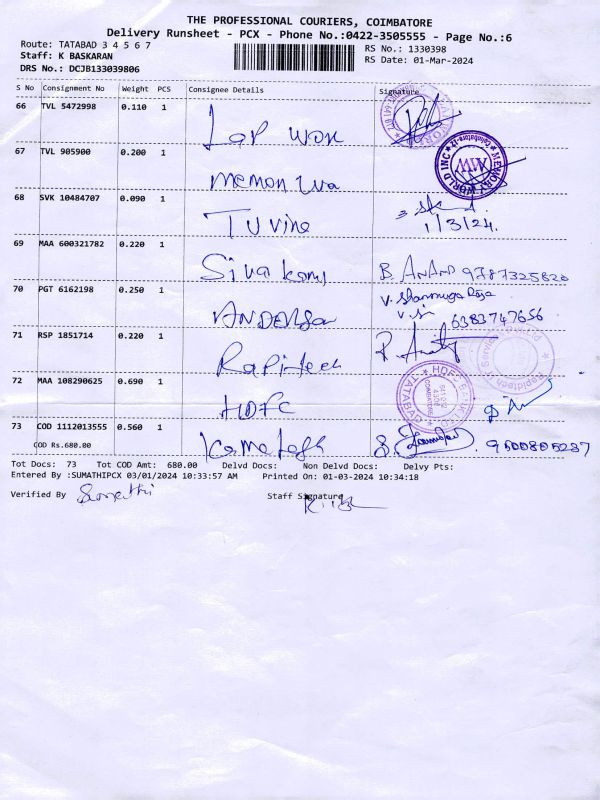 THE PROFESSIONAL COURIERS, COIMBATORE
Delivery Runsheet - PCX - Phone No.:0422-3505555 - Page No.:6
Route: TATABAD 3 4 5 6 7
RS No.: 1330398
Staff: K BASKARAN
RS Date: 01-Mar-2024
DRS No.: DCJB133039806
S No Consignment No Weight PCS Consignee Details Signature
66 TVL 5472998 0.110 1
Lap won
67 TVL 905900 0.200 1
MEMORY WORLD INC
MW
68 SVK 10484707 0.090 1
Tuvine
1/3/24.
69 MAA 600321782 0.220 1
Siva kami B ANAND 9787325820
70 PGT 6162198 0.250 1
V. Shanmuga Raja
ANDERSON 6383747656
71 RSP 1851714 0.220 1
Rapitech
72 MAA 108290625 0.690 1
HDFC
HDFC BANK
COIMBATORE
TATABAD
73 COD 1112013555 0.560 1
COD Rs.680.00
Tot Docs: 73 Tot COD Amt: 680.00 Delvd Docs: Non Delvd Docs: Delvy Pts:
Entered By :SUMATHIPCX 03/01/2024 10:33:57 AM Printed On: 01-03-2024 10:34:18
Verified By Sumathi Staff Signature